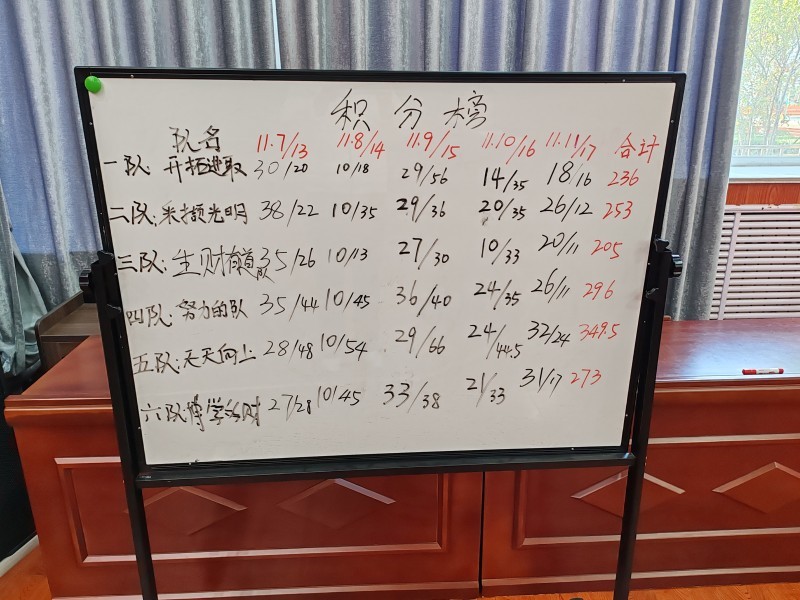 积分榜
队名 11.7/13 11.8/14 11.9/15 11.10/16 11.11/17 合计
一队: 开拓进取 30/20 10/18 29/56 14/35 18/16 236
二队: 采撷光明 38/22 10/35 29/36 20/35 26/12 253
三队: 生财有道队 35/26 10/13 27/30 10/33 20/11 205
四队: 努力的队 35/44 10/45 36/40 24/35 26/11 296
五队: 天天向上 28/48 10/54 29/66 24/44.5 32/24 349.5
六队: 博学 财 27/28 10/45 33/38 21/33 31/17 273